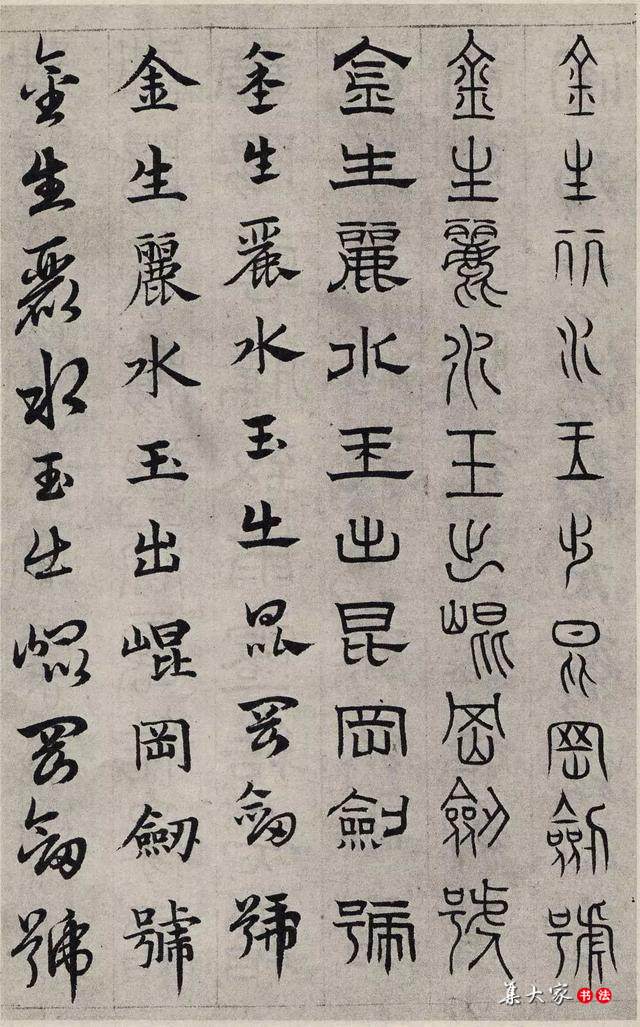 金生丽水玉出昆冈劔號
金生麗水玉出崐岡劔號
金生麗水玉出昆岡劍號
金生麗水玉出昆岡劔號
金生麗水玉出崐岡劒號
金生麗水玉出崐岡劔號
集大家书法